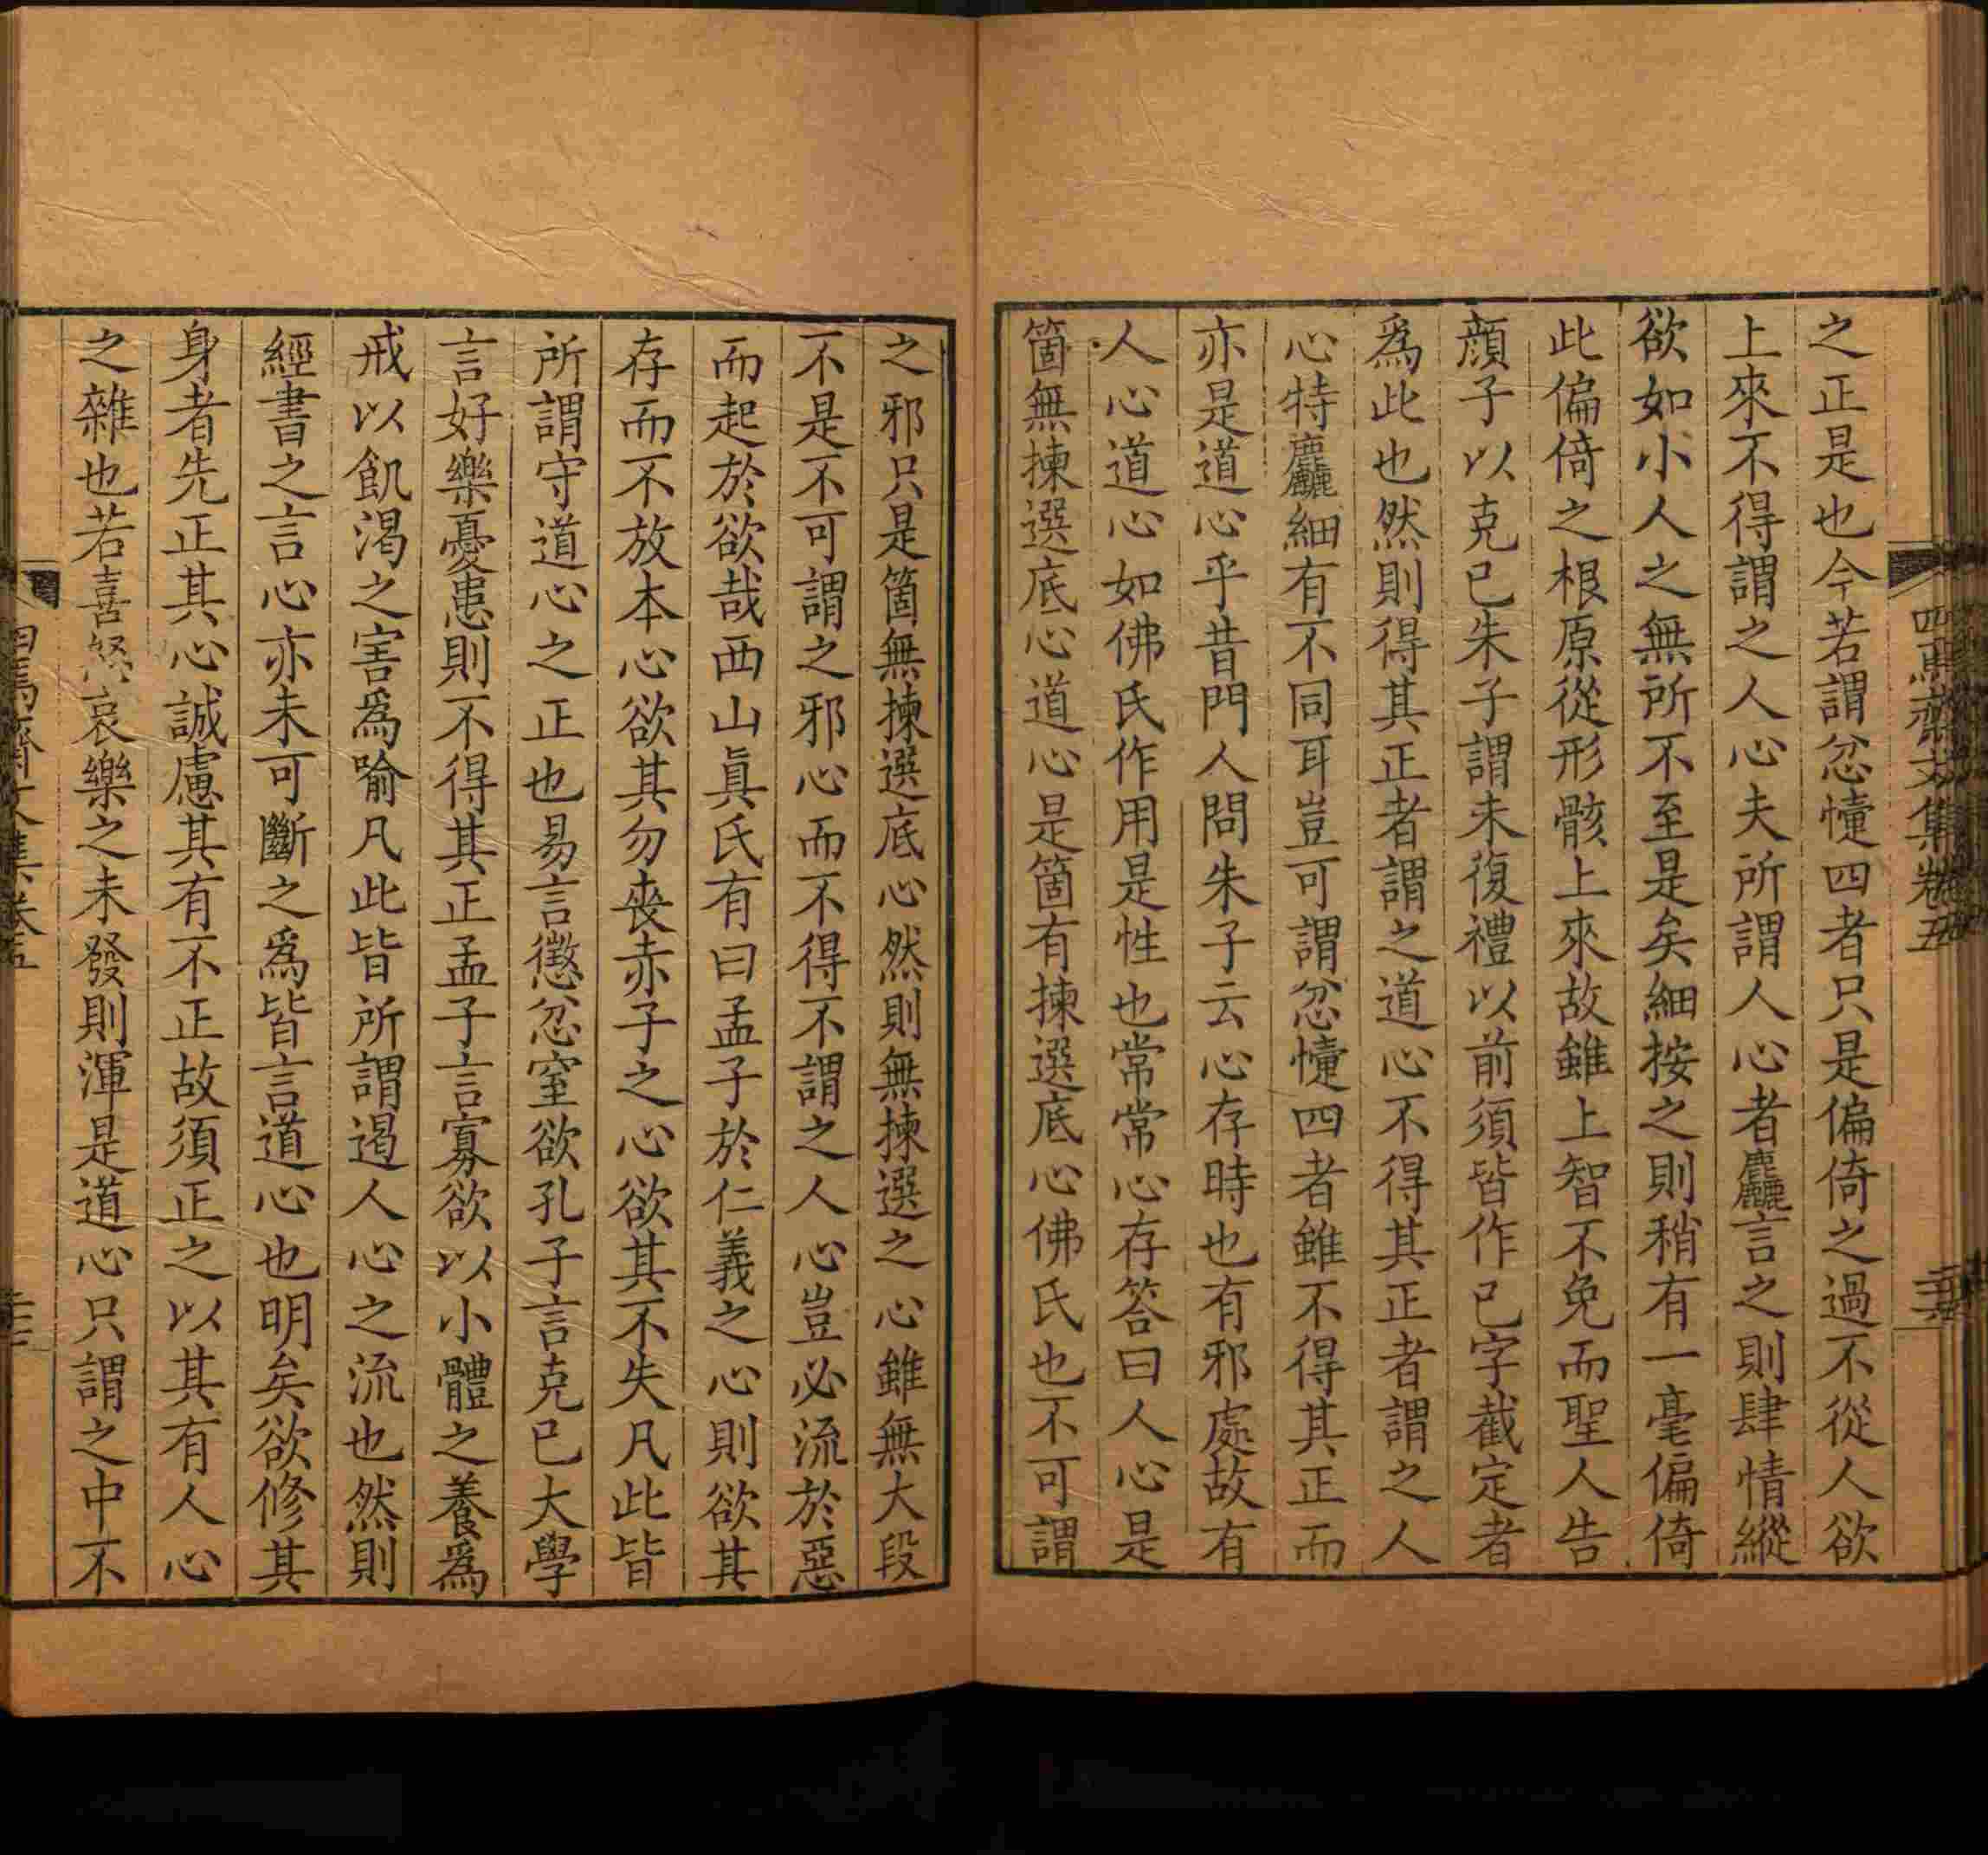 四焉齋文集卷五
之正是也今若謂忿懥四者只是偏倚之過不從人欲
上來不得謂之人心夫所謂人心者麤言之則肆情縱
欲如小人之無所不至是矣細按之則稍有一毫偏倚
此偏倚之根原從形骸上來故雖上智不免而聖人告
顔子以克己朱子謂未復禮以前須皆作己字截定者
爲此也然則得其正者謂之道心不得其正者謂之人
心特麤細有不同耳豈可謂忿懥四者雖不得其正而
亦是道心乎昔門人問朱子云心存時也有邪處故有
人心道心如佛氏作用是性也常常心存答曰人心是
箇無揀選底心道心是箇有揀選底心佛氏也不可謂
之邪只是箇無揀選底心然則無揀選之心雖無大段
不是不可謂之邪心而不得不謂之人心豈必流於惡
而起於欲哉西山眞氏有曰孟子於仁義之心則欲其
存而不放本心欲其勿喪赤子之心欲其不失凡此皆
所謂守道心之正也易言懲忿窒欲孔子言克己大學
言好樂憂患則不得其正孟子言寡欲以小體之養爲
戒以飢渴之害爲喻凡此皆所謂遏人心之流也然則
經書之言心亦未可斷之爲皆言道心也明矣欲修其
身者先正其心誠慮其有不正故須正之以其有人心
之雜也若喜怒哀樂之未發則渾是道心只謂之中不
四焉齋文集卷五